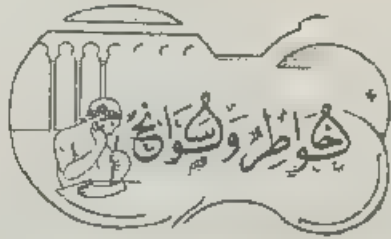 خواطر وسوانح